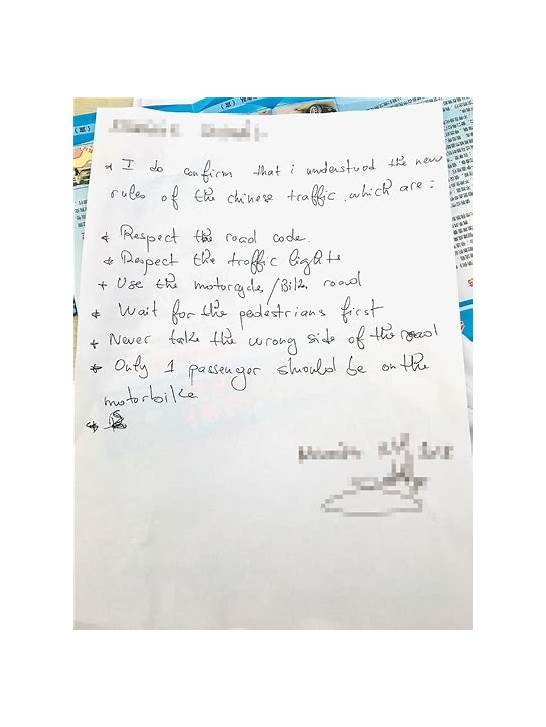 * I do confirm that i understood the new
rules of the chinese traffic. which are :
* Respect the road code.
* Respect the traffic lights
* Use the motorcycle/Bike road
* Wait for the pedestrians first
* Never take the wrong side of the road
* Only 1 passenger should be on the
motorbike
*